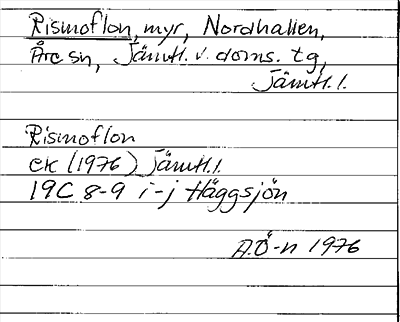 Rismoflon, myr, Nordhallen,
Åre sn, Jämtl. v. doms. tg,
Jämtl. l.
Rismoflon
ek (1976) Jämtl. l.
19C 8-9 i-j Häggsjön
A.Ö-n 1976